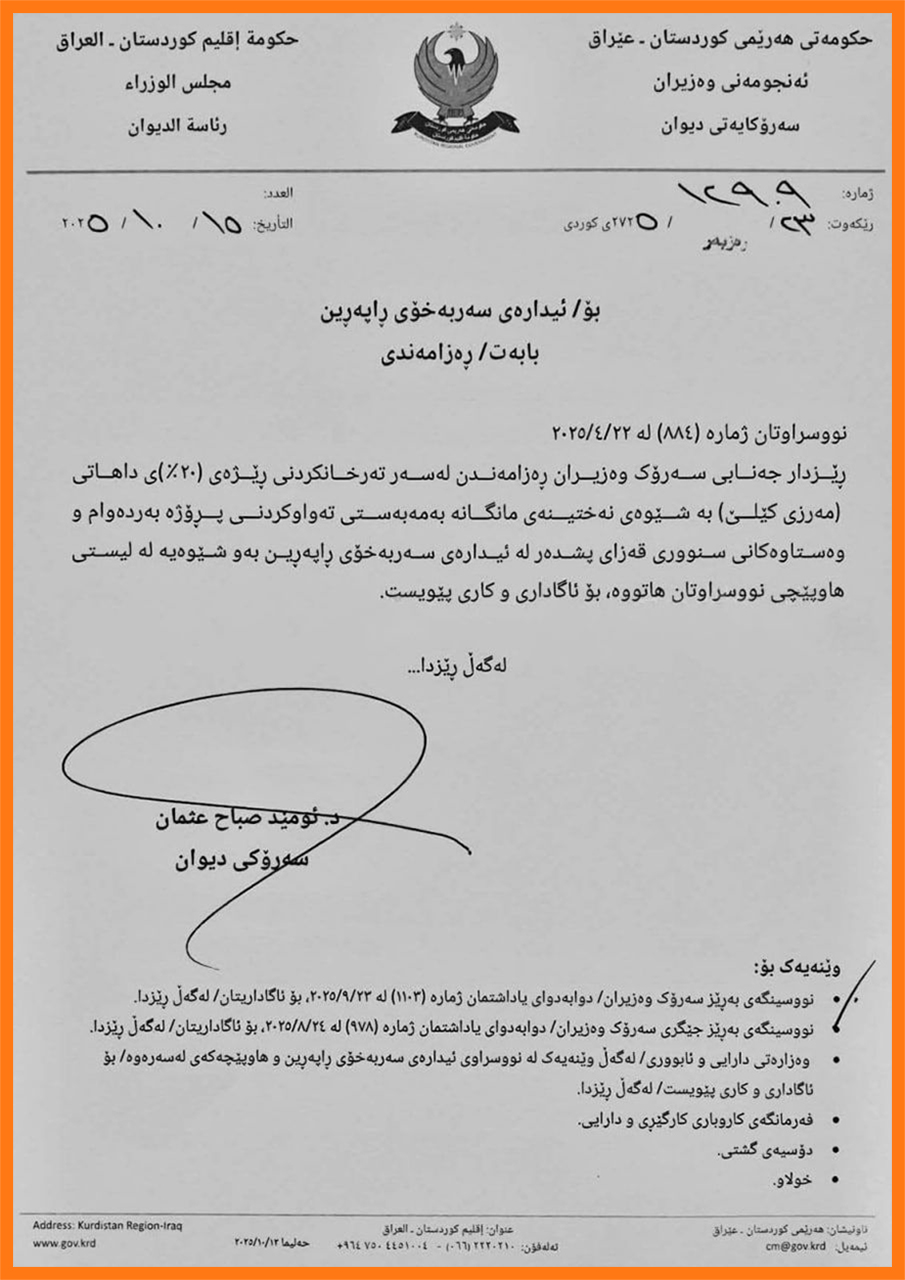 حکومەتی هەرێمی کوردستان ـ عێراق
ئەنجومەنی وەزیران
سەرۆکایەتی دیوان
حكومة إقليم كوردستان ـ العراق
مجلس الوزراء
رئاسة الديوان
ژمارە: ١٢٩٠٩
ڕێکەوت: ٢٣ / ڕەزبەر / ٢٧٢٥ی کوردی
العدد:
التأريخ: ١٥ / ١٠ / ٢٠٢٥
بۆ/ ئیدارەی سەربەخۆی ڕاپەڕین
بابەت/ ڕەزامەندی
نووسراوتان ژمارە (٨٨٤) لە ٢٠٢٥/٤/٢٢
ڕێزدار جەنابی سەرۆک وەزیران ڕەزامەندن لەسەر تەرخانکردنی ڕێژەی (٢٠٪)ی داهاتی
(مەرزی کێلێ) بە شێوەی نەختینەی مانگانە بەمەبەستی تەواوکردنی پڕۆژە بەردەوام و
وەستاوەکانی سنووری قەزای پشدەر لە ئیدارەی سەربەخۆی ڕاپەڕین بەو شێوەیە لە لیستی
هاوپێچی نووسراوتان هاتووە، بۆ ئاگاداری و کاری پێویست.
لەگەڵ ڕێزدا...
د. ئومێد صباح عثمان
سەرۆکی دیوان
وێنەیەک بۆ:
• نووسینگەی بەڕێز سەرۆک وەزیران/ دوابەدوای یاداشتمان ژمارە (١١٠٣) لە ٢٠٢٥/٩/٢٣، بۆ ئاگاداریتان/ لەگەڵ ڕێزدا.
• نووسینگەی بەڕێز جێگری سەرۆک وەزیران/ دوابەدوای یاداشتمان ژمارە (٩٧٨) لە ٢٠٢٥/٨/٢٤، بۆ ئاگاداریتان/ لەگەڵ ڕێزدا.
• وەزارەتی دارایی و ئابووری/ لەگەڵ وێنەیەک لە نووسراوی ئیدارەی سەربەخۆی ڕاپەڕین و هاوپێچەکەی لەسەرەوە/ بۆ
ئاگاداری و کاری پێویست/ لەگەڵ ڕێزدا.
• فەرمانگەی کاروباری کارگێڕی و دارایی.
• دۆسیەی گشتی.
• خولاو.
ناونیشان: هەرێمی کوردستان ـ عێراق
ئیمەیل: cm@gov.krd
عنوان: إقليم كوردستان ـ العراق
تەلەفۆن: ٢٢٢٠٢١٠ (٠٦٦) - ٤٤٥١٠٠٤ ٧٥٠ ٩٦٤+
حەلیما ٢٠٢٥/١٠/١٢
Address: Kurdistan Region-Iraq
www.gov.krd